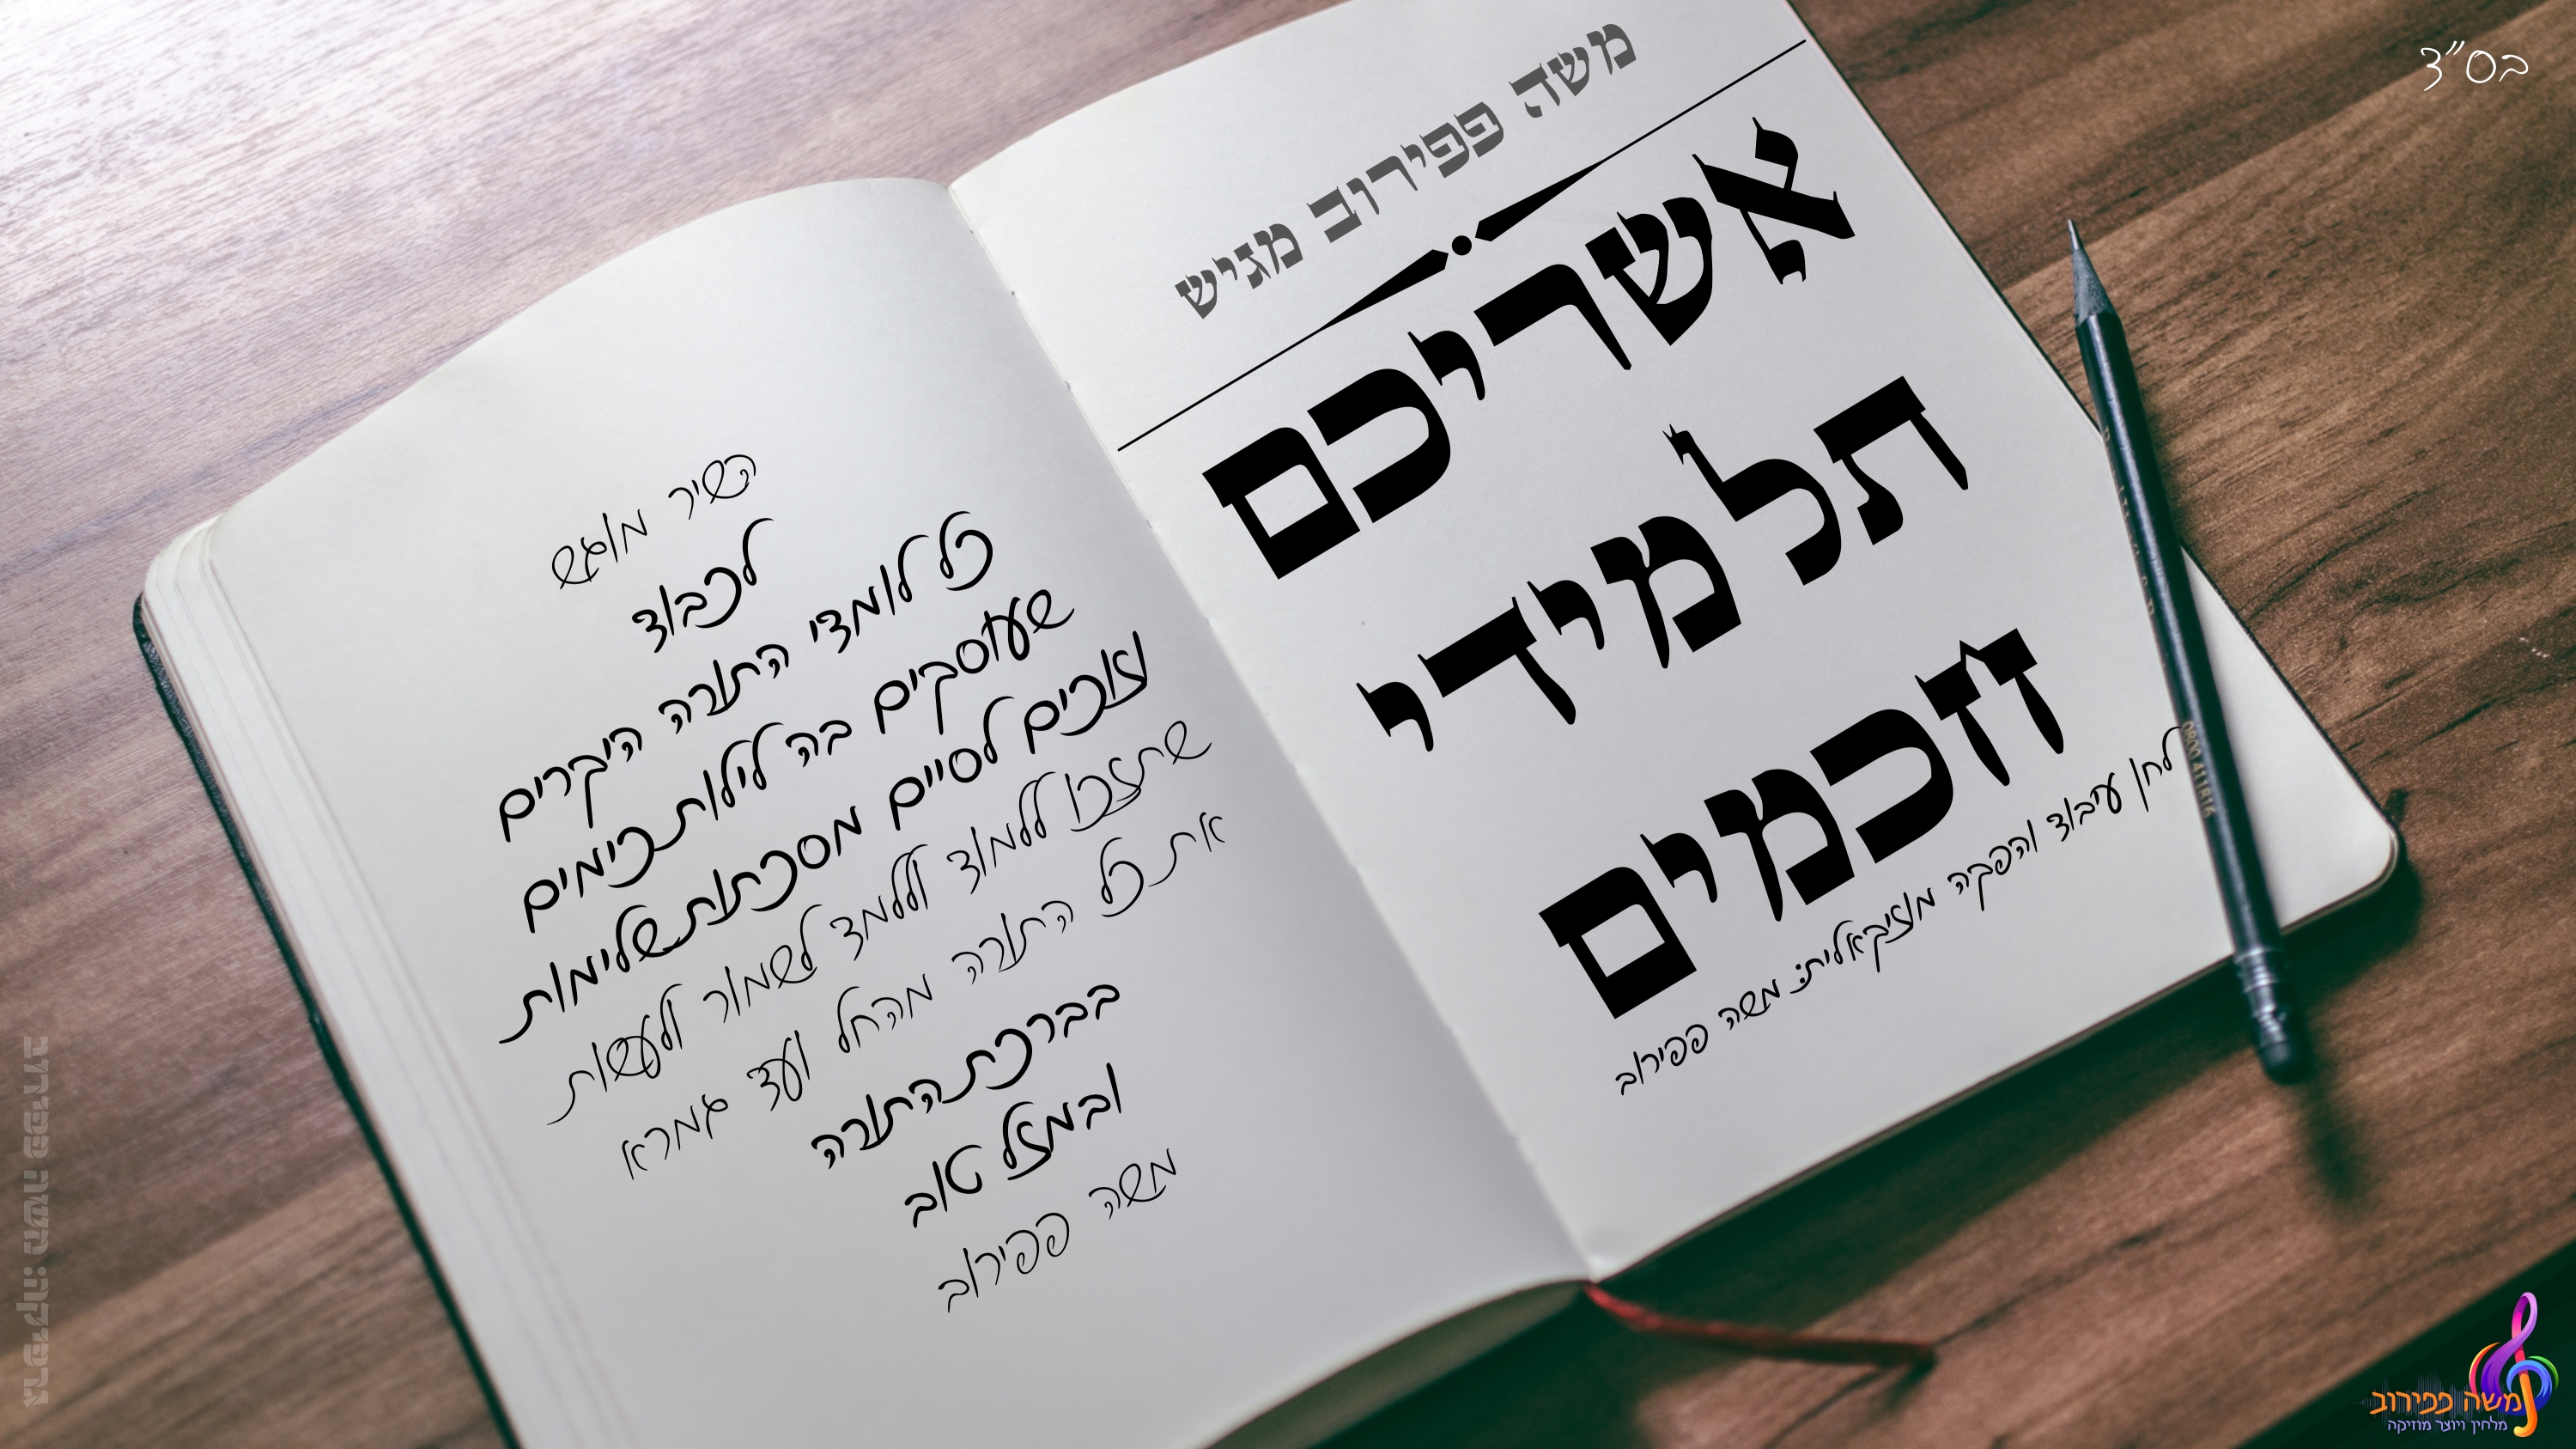 בס"ד
משה פפירוב מגיש
אשריכם
תלמידי
חכמים
לחן עיבוד והפקה מוזיקאלית: משה פפירוב
השיר מוגש
לכבוד
כל לומדי התורה היקרים
שעוסקים בה לילות כימים
וזוכים לסיים מסכתות שלימות
שתזכו ללמוד וללמד לשמור ולעשות
את כל התורה מהחל ועד גמרא
בברכת התורה
ובמזל טוב
משה פפירוב
גרפיקה: משה פפירוב
משה פפירוב
מלחין ויוצר מוזיקה
0800 411816